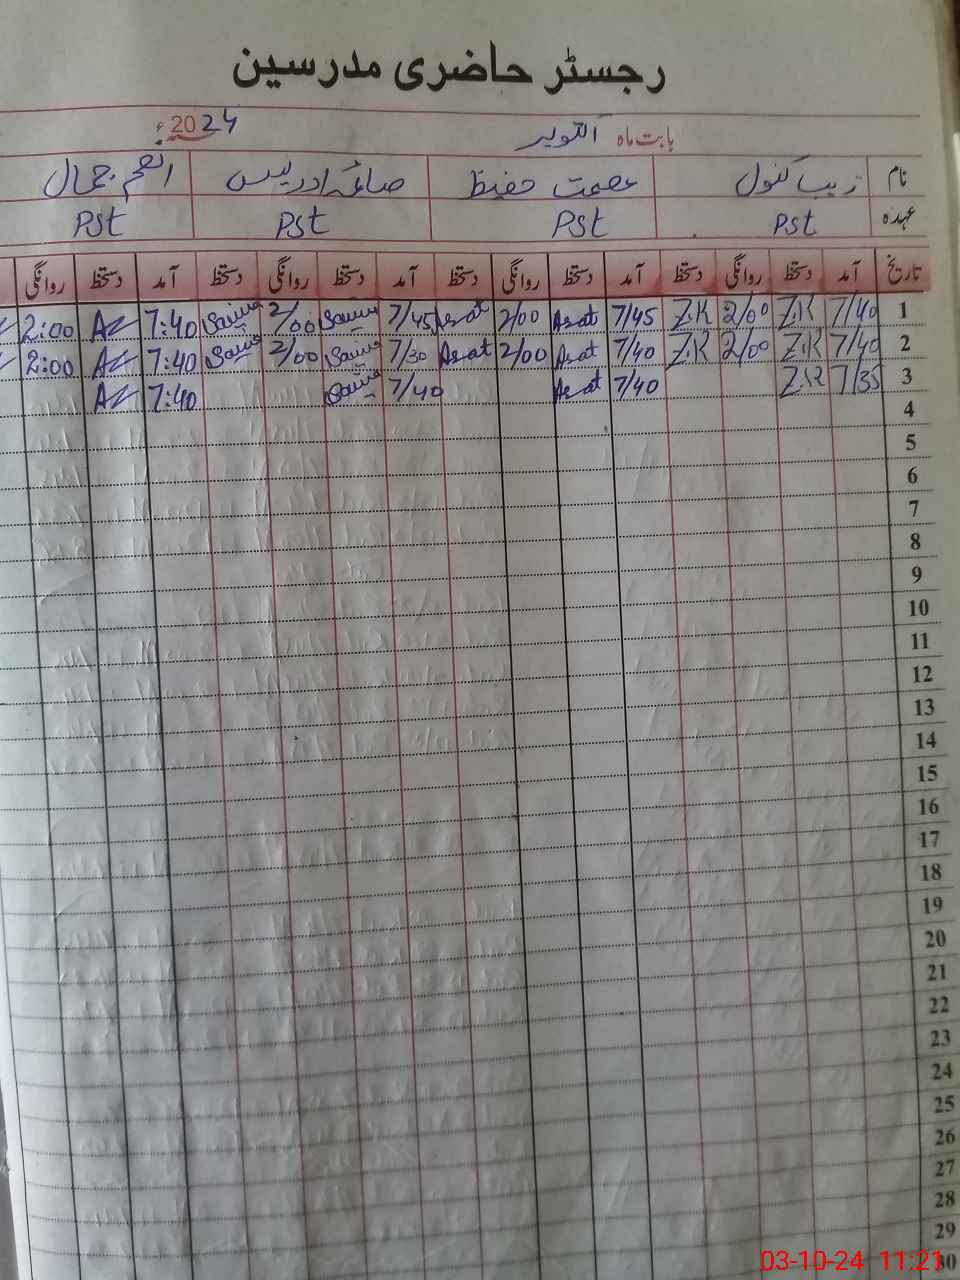 رجسٹر حاضری مدرسین
بابت ماہ اکتوبر 2024ء
نام زیب کنول عصمت حفیظ صائمہ ادریس انعم جمال
عہدہ Pst Pst Pst Pst
تاریخ آمد دستخط روانگی دستخط آمد دستخط روانگی دستخط آمد دستخط روانگی دستخط آمد دستخط روانگی
1 7/40 Z.K 2/00 Z.K 7/45 Asmat 2/00 Asmat 7/45 Saima 2/00 Saima 7:40 AZ 2:00
2 7/40 Z.K 2/00 Z.K 7/40 Asmat 2/00 Asmat 7/30 Saima 2/00 Saima 7:40 AZ 2:00
3 7/35 Z.K 7/40 Asmat 7/40 Saima 7:40 AZ
4
5
6
7
8
9
10
11
12
13
14
15
16
17
18
19
20
21
22
23
24
25
26
27
28
29
30
03-10-24 11:21